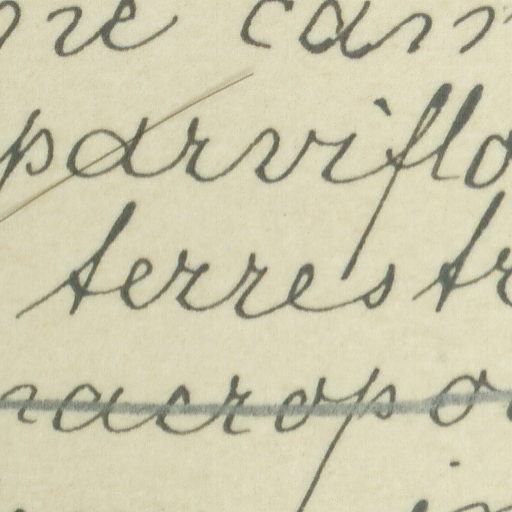 ne can
parviflo
terrestr
macropo